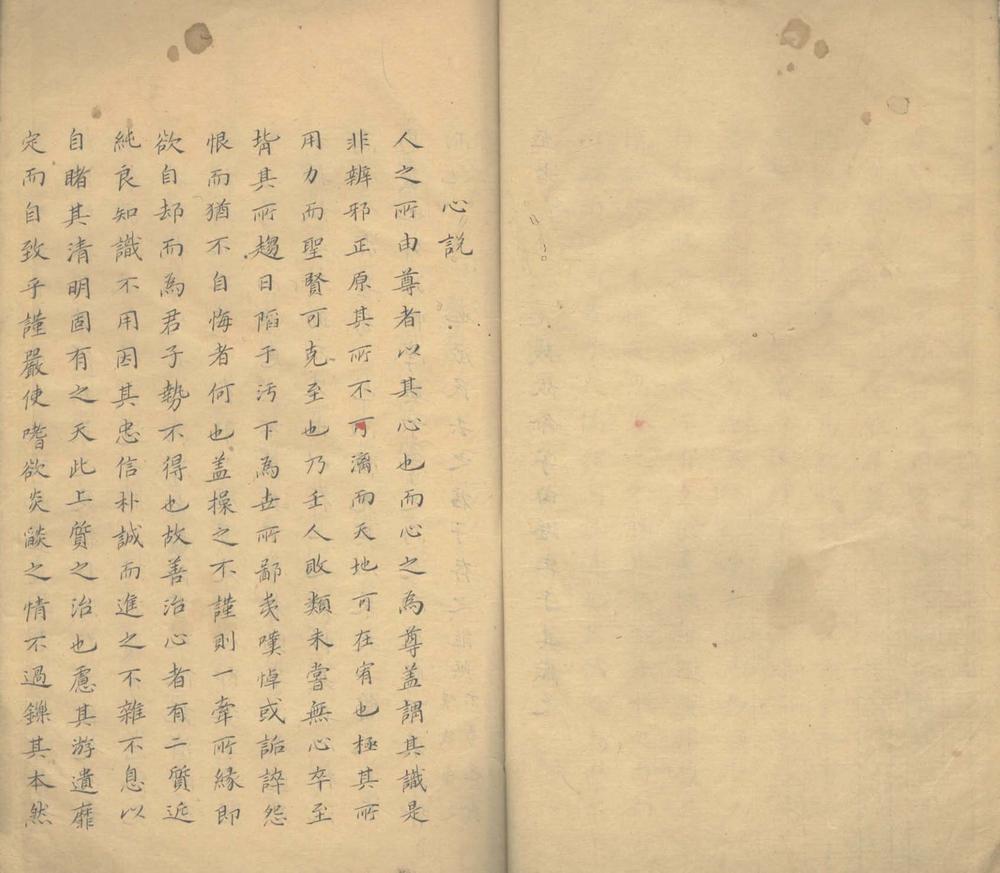 心說
人之所由尊者以其心也而心之為尊蓋謂其識是
非辨邪正原其所不可漓而天地可在宥也極其所
用力而聖賢可克至也乃壬人敗類未嘗無心卒至
背其所趨日陷于汚下為世所鄙夷嘆悼或詬誶怨
恨而猶不自悔者何也盖操之不謹則一牽所緣即
欲自却而為君子勢不得也故善治心者有二質近
純良知識不用因其忠信朴誠而進之不雜不息以
自睹其清明固有之天此上質之治也慮其游遺靡
定而自致乎謹嚴使嗜欲炎燄之情不過鑠其本然